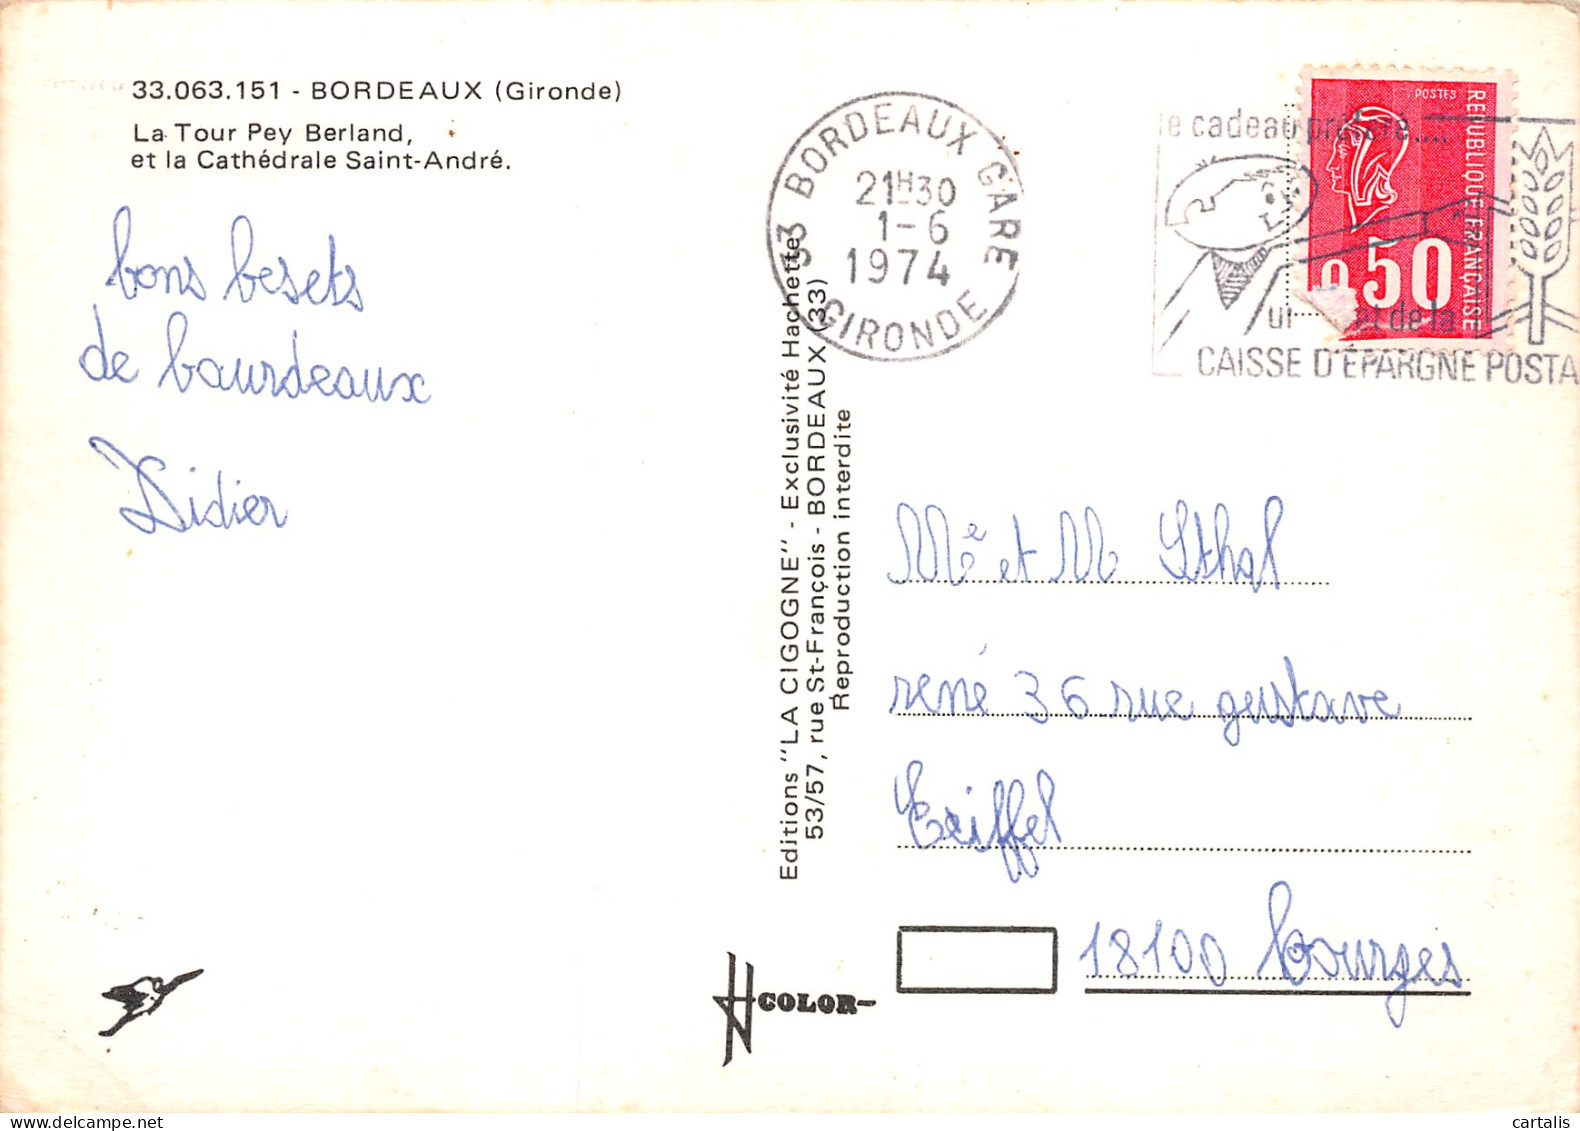 33.063.151 - BORDEAUX (Gironde)
La Tour Pey Berland,
et la Cathédrale Saint-André.
bons besets
de bourdeaux
Didier
Editions "LA CIGOGNE" - Exclusivité Hachette
53/57, rue St-François - BORDEAUX (33)
Reproduction interdite
COLOR
33 BORDEAUX GARE
21H30
1-6
1974
GIRONDE
le cadeau préféré....
et de la
CAISSE D'ÉPARGNE POSTA
POSTES
REPUBLIQUE FRANÇAISE
0.50
Me et M Sthal
rené 36 rue gustave
Eeiffel
18100 bourges
cartalis